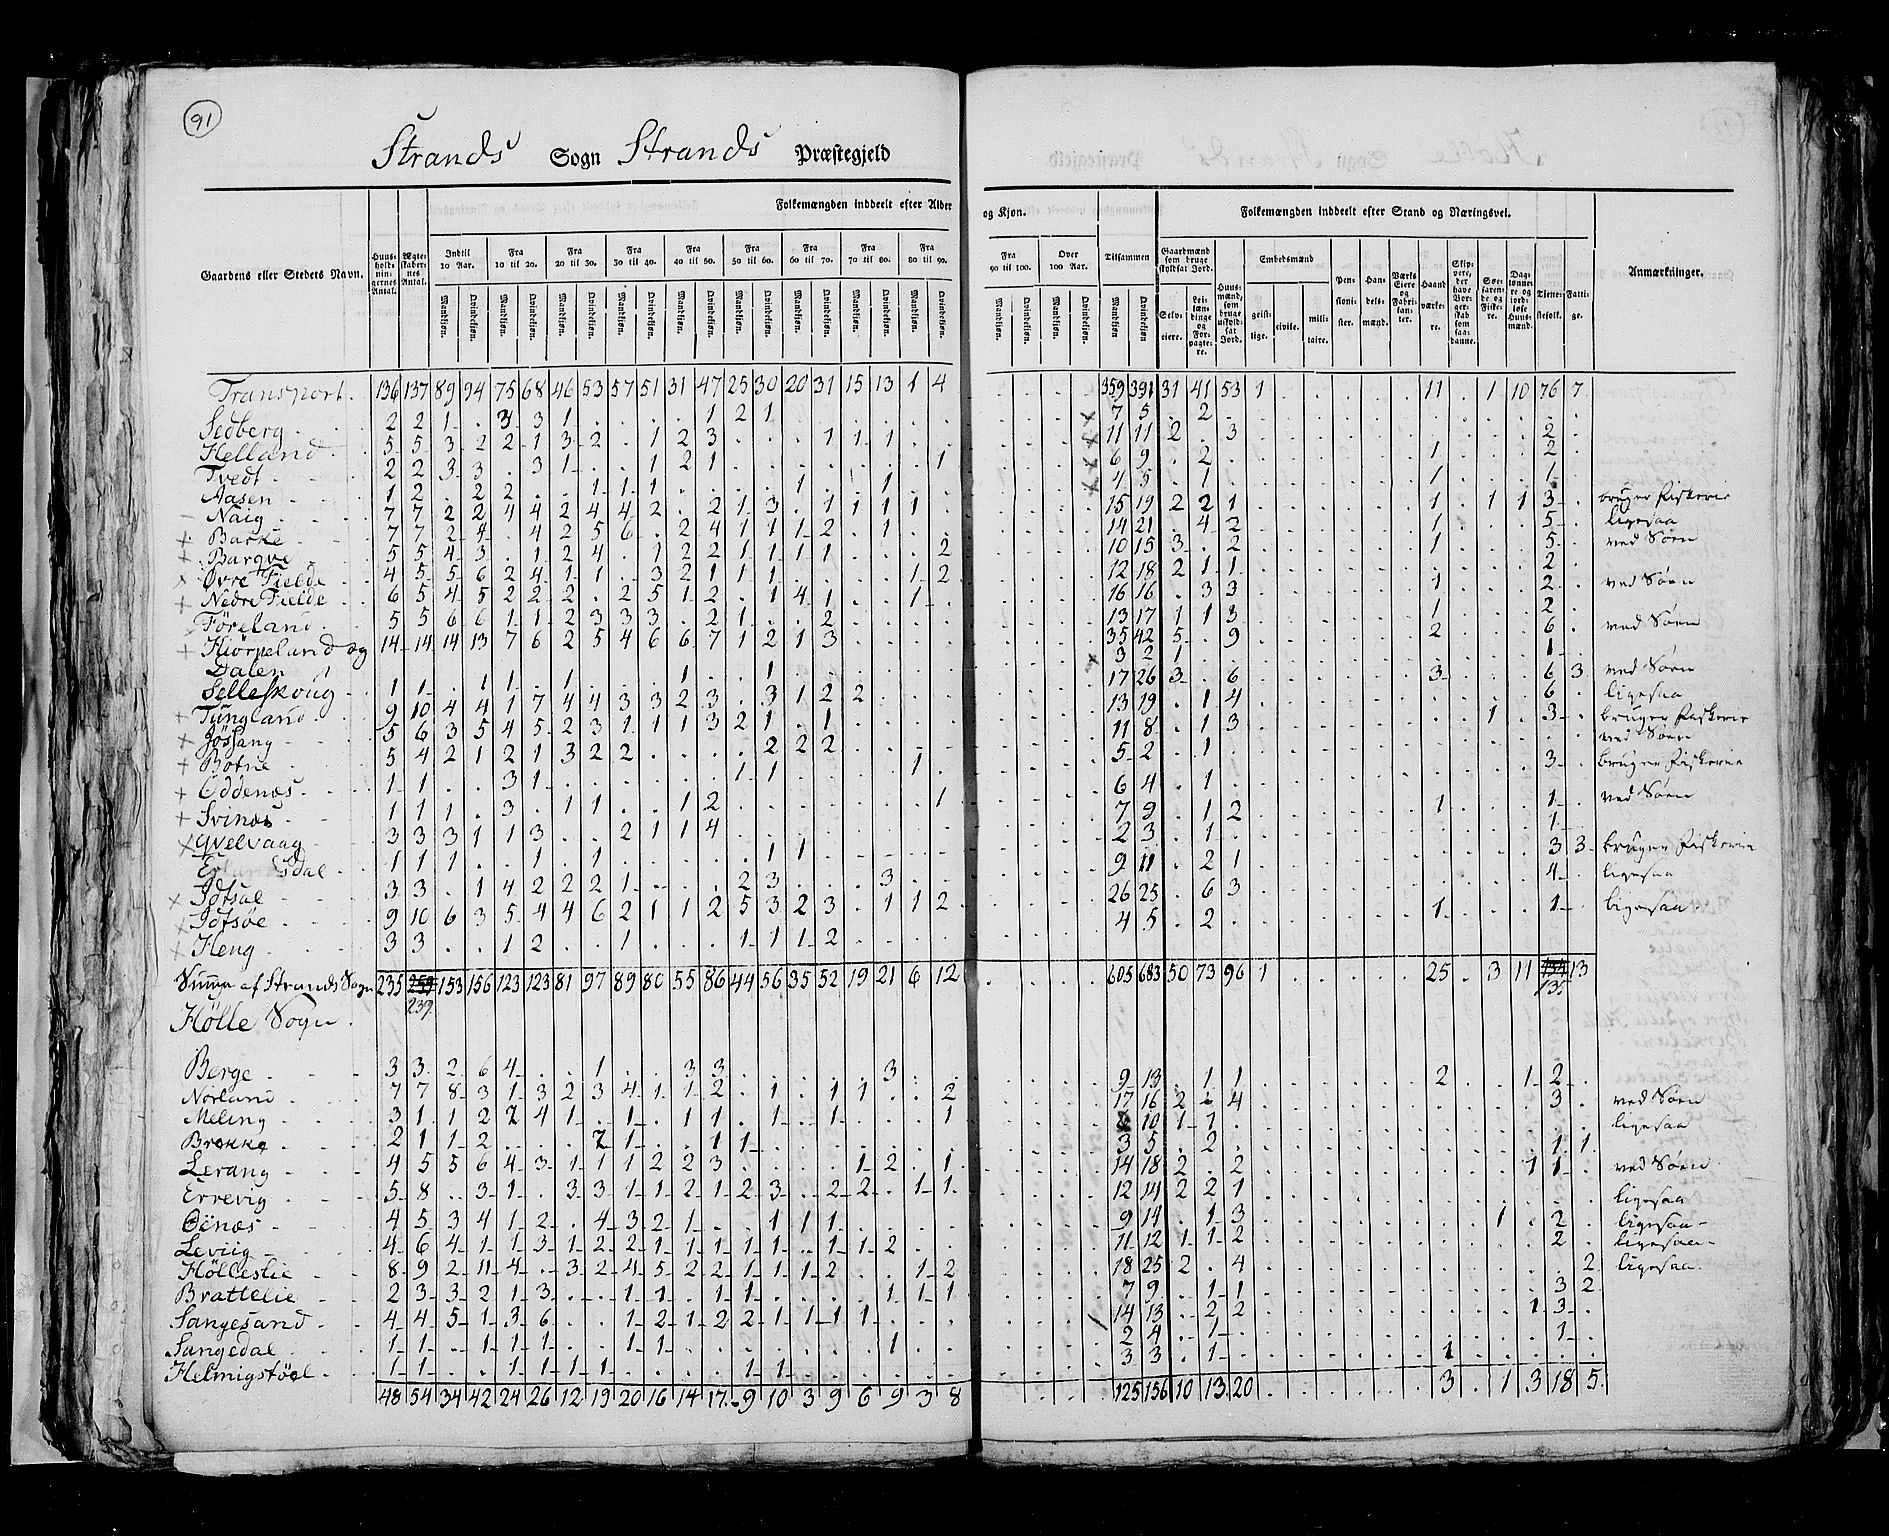 91
Strands Sogn Strands Præstegjeld
Folkemængden inddeelt efter Alder og Kjøn.
Folkemængden inddeelt efter Stand og Næringsvei.
Gaardens eller Stedets Navn.
Huus-holdningernes Antal.
Ægteskabernes Antal.
Indtil 10 Aar.
Fra 10 til 20.
Fra 20 til 30.
Fra 30 til 40.
Fra 40 til 50.
Fra 50 til 60.
Fra 60 til 70.
Fra 70 til 80.
Fra 80 til 90.
Fra 90 til 100.
Over 100 Aar.
Tilsammen
Mandkjøn. Qvindekjøn.
Gaardmænd som bruge skyldsat Jord.
Selveiere.
Leilændinge og Forpagtere.
Huusmænd, som bruge uskyldsat Jord.
Embedsmænd
geistlige.
civile.
militaire.
Pensionister.
Handelsmænd.
Værks Eiere og Fabrikanter.
Haandværkere.
Skippere, der have Borgerskab som saadanne.
Søefarende og Fiskere.
Daglønnere og jordløse Huusmænd.
Tjenestefolk.
Fattige.
Anmærkninger.
Transport. 136 137 89 94 75 68 46 53 57 51 31 47 25 30 20 31 15 13 1 4 359 391 31 41 53 1 11 1 10 76 7
Sedberg 2 2 1 3 3 1 1 2 1 7 5 2
Helland 5 5 3 2 2 1 3 2 1 2 3 1 1 1 11 11 2 3 2
Tvedt 2 2 3 3 3 1 1 2 1 1 6 9 2 1 2
Aasen 1 2 2 2 1 1 1 1 1 4 5 1 1 1
Naig 7 7 2 2 4 4 2 4 4 2 2 1 3 1 1 1 1 15 19 2 2 1 1 1 1 3 bruger Fiskerie
Barke 7 7 2 4 4 2 5 6 2 4 1 1 1 2 1 14 21 4 2 1 5 ligesaa
Bargve 5 5 4 3 1 2 4 1 2 2 1 1 1 1 2 10 15 3 2 1 5 ved Søen
Øvre Fielde 4 5 5 6 2 4 1 1 3 2 1 1 1 1 2 12 18 2 1 1 2
Nedre Fielde 6 5 4 5 2 2 2 2 5 1 2 1 4 1 1 16 16 3 3 1 2 ved Søen
Föreland 5 5 6 6 1 1 2 3 3 3 2 1 2 13 17 1 1 3 1 2
Hiörneland og 14 14 14 13 7 6 2 5 4 6 6 7 1 2 1 3 35 42 5 9 2 6 ved Søen
Dalen
Selleskoug 1 1 1 1 1 1 1 3 2 1 1
Tungland 9 10 4 4 1 7 4 4 3 3 2 3 3 1 2 2 17 26 3 6 3 6 3 ved Søen
Jössang 5 6 3 5 4 5 2 3 1 1 1 3 2 1 1 13 19 1 4 6 ligesaa
Botne 5 4 2 1 2 1 3 2 2 2 2 2 11 8 1 3 1 3 bruger Fiskerie
Oddenæs 1 1 3 1 1 1 1 5 2 1 ved Søen
Svinæs 1 1 1 3 1 1 1 2 1 6 4 1 3 bruger Fiskerie
Qvelvaag 3 3 3 1 1 3 2 1 1 4 7 9 1 2 1 1 ved Søen
1 1 1 1 1 1 1 2 3 1 1
Idtsal 3 3 1 4 2 2 2 1 2 3 3 9 11 2 1 3 3 bruger Fiskerie
Idtsöe 9 10 6 3 5 4 4 6 2 1 1 2 5 3 2 3 1 1 2 26 25 6 3 4 ligesaa
Heng 3 3 1 2 1 1 1 1 2 4 5 2 1 1 ligesaa
Summa af Strands Sogn 235 239 153 156 123 123 81 97 89 80 55 86 44 56 35 52 19 21 6 12 605 683 50 73 96 1 25 3 11 135 13
Hölle Sogn.
Berge 3 3 2 6 4 1 3 3 3 9 13 1 1 2 1 2
Norland 7 7 8 3 1 3 2 3 4 1 1 2 1 1 1 2 17 16 2 4 3 ved Søen
Meling 3 1 1 2 2 4 1 1 1 1 1 1 1 8 10 1 1 ligesaa
Brekke 2 1 1 2 2 1 1 1 3 5 2 1 1
Lerang 4 5 5 6 4 3 1 1 1 2 2 3 1 2 1 14 18 2 2 1 1 ved Søen
Errevig 5 8 3 1 3 3 1 1 2 1 2 3 2 2 1 1 12 14 2 2 1 ligesaa
Öenæs 4 5 3 4 1 2 4 3 2 1 1 1 1 9 14 1 3 1 2 ligesaa
Leviig 4 6 4 1 1 3 1 2 2 1 1 1 1 1 1 1 2 11 12 1 1 2 2 ligesaa
Hölleslie 8 9 2 11 4 3 2 4 5 2 2 1 1 1 2 1 2 18 25 2 4 2 ligesaa
Brattelie 2 3 3 2 1 3 1 1 1 1 1 1 1 7 9 1 1 3 2
Sangesand 4 4 5 1 3 6 1 2 1 2 2 1 1 1 1 14 13 2 2 1 3
Sangedal 1 1 1 1 1 1 1 1 2 4 1 1
Helmigstöel 1 1 1 1 1 1 1 1 3 3 1 1
48 54 34 42 24 26 12 19 20 16 14 17 9 10 3 9 6 9 3 8 125 156 10 13 20 3 1 3 18 5